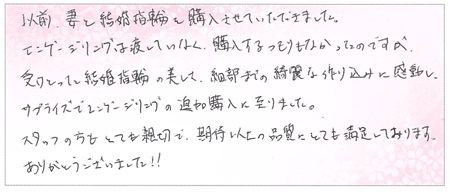 以前、妻と結婚指輪を購入させていただきました。
エンゲージリングは渡していなく、購入するつもりもなかったのですが、
受けとった結婚指輪の美しく、細部までの綺麗な作り込みに感動し、
サプライズでエンゲージリングの追加購入に至りました。
スタッフの方もとても親切で、期待以上の品質にとても満足しております。
ありがとうございました!!